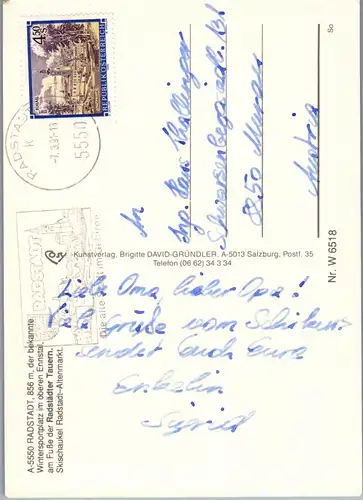 REPUBLIK ÖSTERREICH
RADSTADT
5550
An
Ing. Hans
8850 Murau
Austria
So
Nr. W 6518
Kunstverlag, Brigitte DAVID-GRÜNDLER, A-5013 Salzburg, Postf. 35
Telefon (06 62) 34 3 34
RADSTADT
Die alte Stadt im Gebirge
Liebe Oma, lieber Opa!
Grüße vom Schikurs
sendet Euch Eure
Enkelin
Sigrid
A-5550 RADSTADT, 856 m, der bekannte
Wintersportplatz im oberen Ennstal,
am Fuße der Radstädter Tauern.
Skischaukel Radstadt-Altenmarkt.